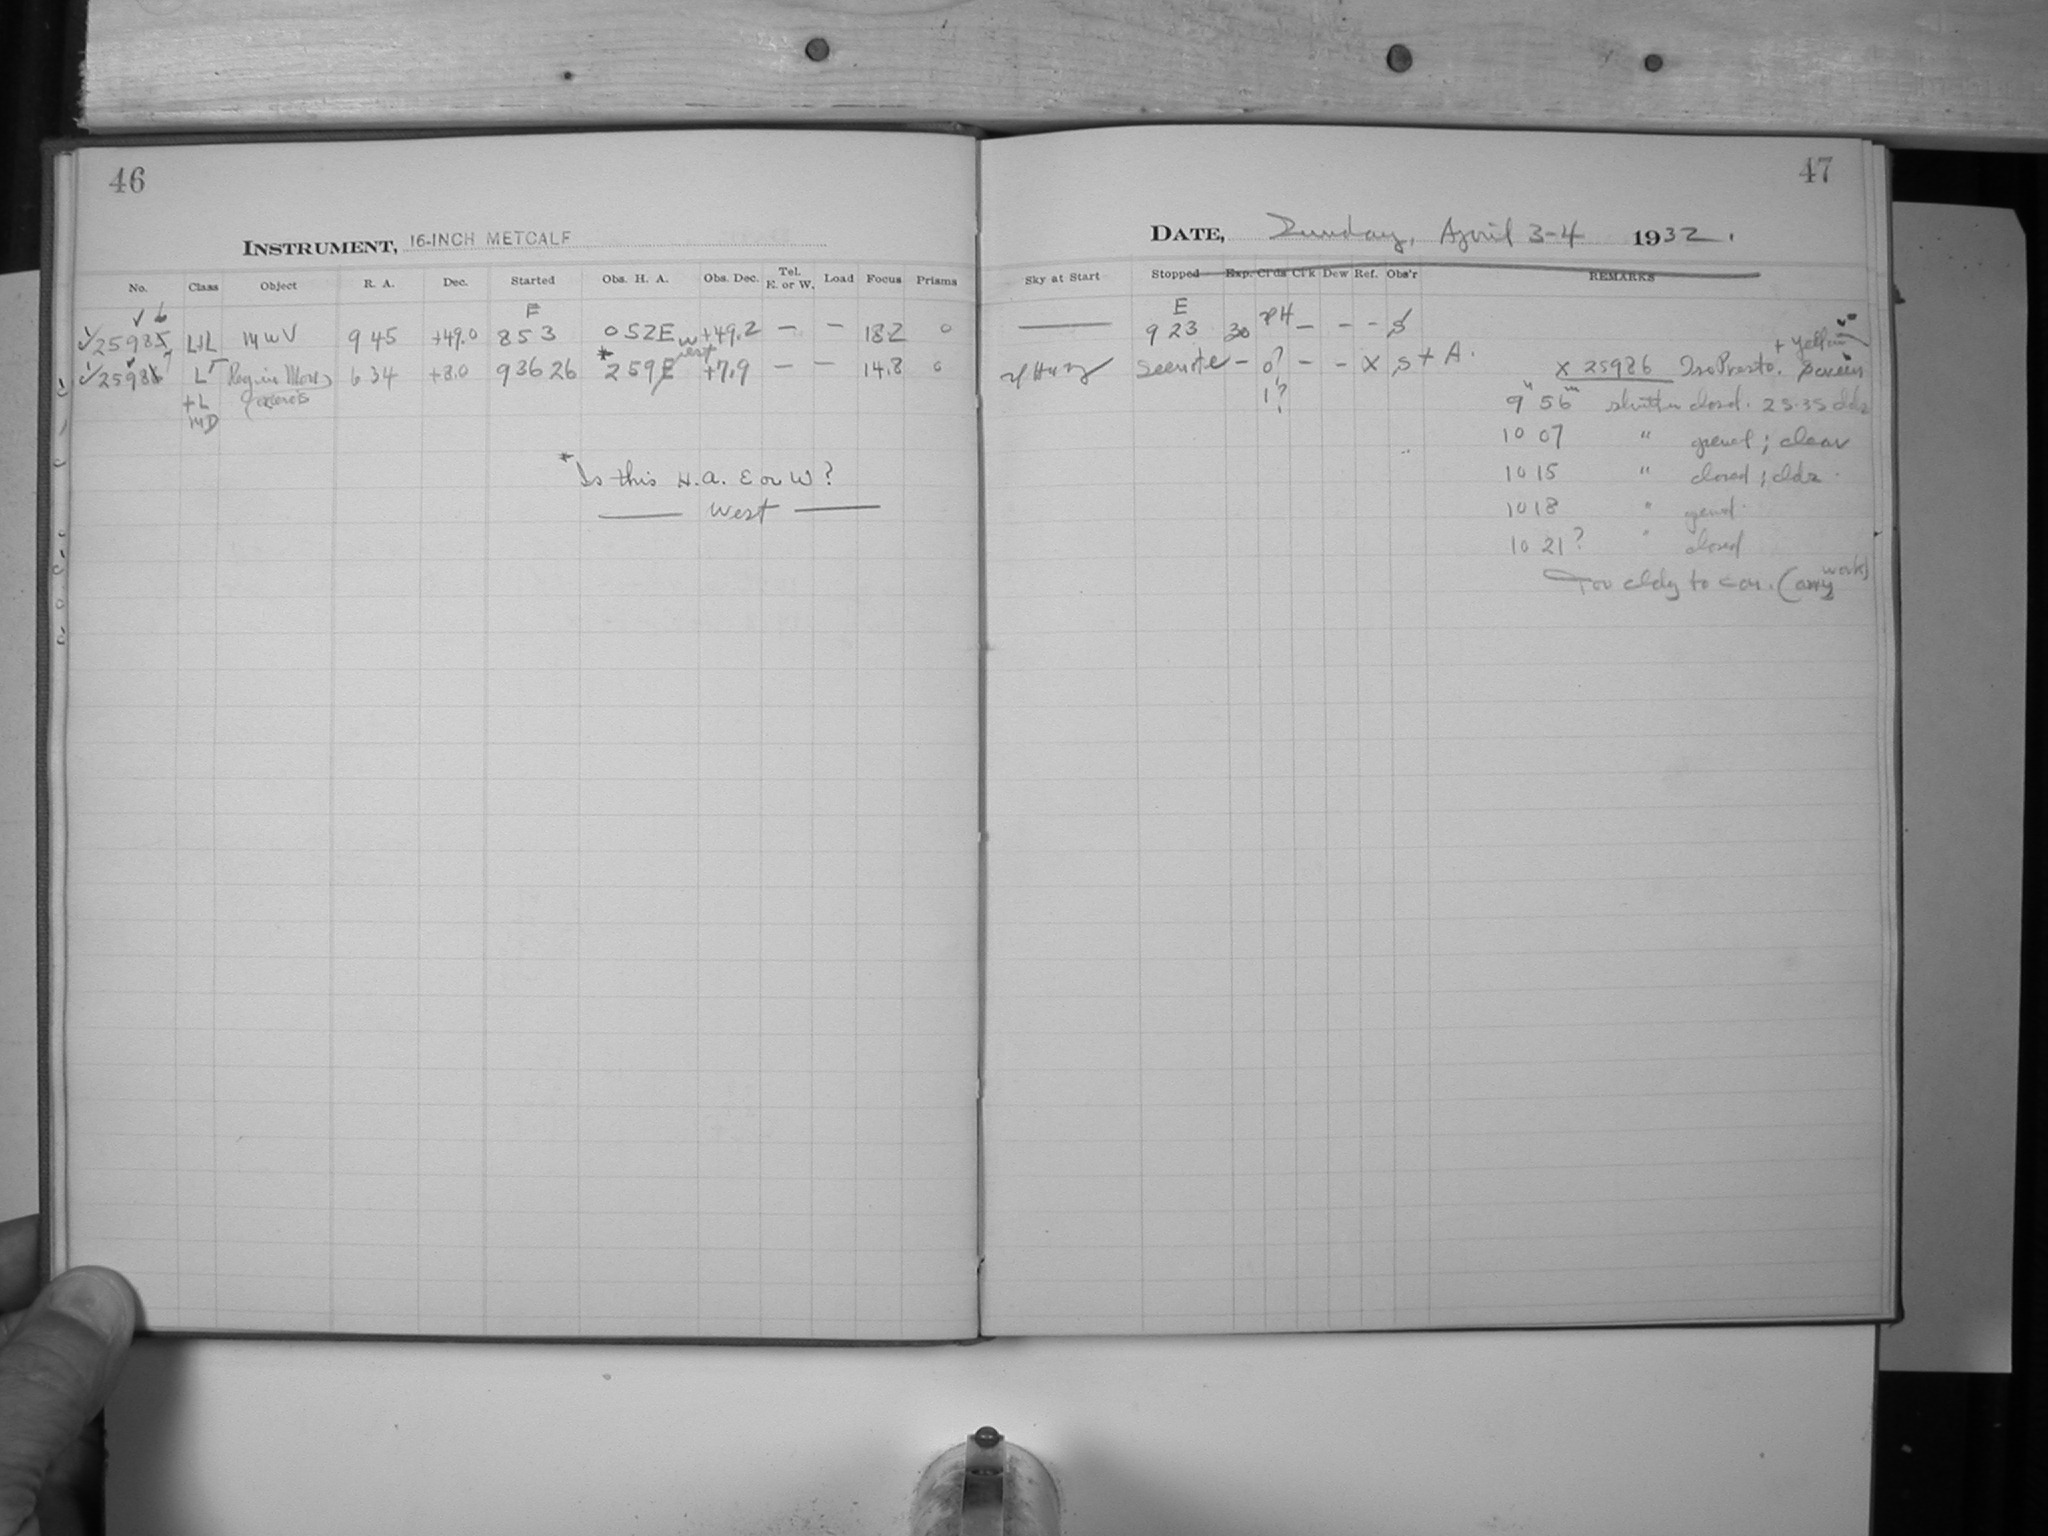 46
INSTRUMENT, 16-INCH METCALF
No. Class Object R. A. Dec. Started Obs. H. A. Obs. Dec. Tel. E. or W. Load Focus Prisms
E
6
25985 L+L MWV 9 45 +49.0 8 53 0 52E +49.2 — — 18.2 0
West
7
25986 L Region Mon. 6 34 +8.0 9 36 26 * 2 59E +7.9 — — 14.8 0
+L
MD
* Is this H.A. E or W?
— West —
47
DATE, Sunday, April 3-4 1932.
Sky at Start Stopped Exp. Cl'ds Cl'k Dew Ref. Obs'r REMARKS
E
— 9 23 30 PH — - - S
+ yellow
sl Hazy See note - 0? — - X S + A. X 25986 Iso Presto. Screen
1?
9h 56m shutter closed. 25-35 cldz
10 07 " opened; clear
10 15 " closed; cldz.
10 18 " opend.
10 21? " closed
Too cldy to con. (any work)